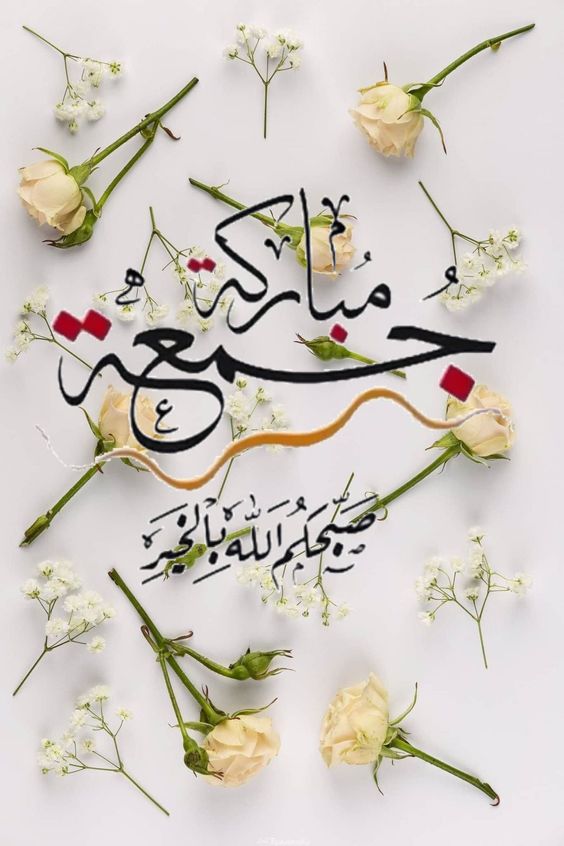 جُمعة
مُباركة
صَبّحكُم اللهَ بِالخَيرِ